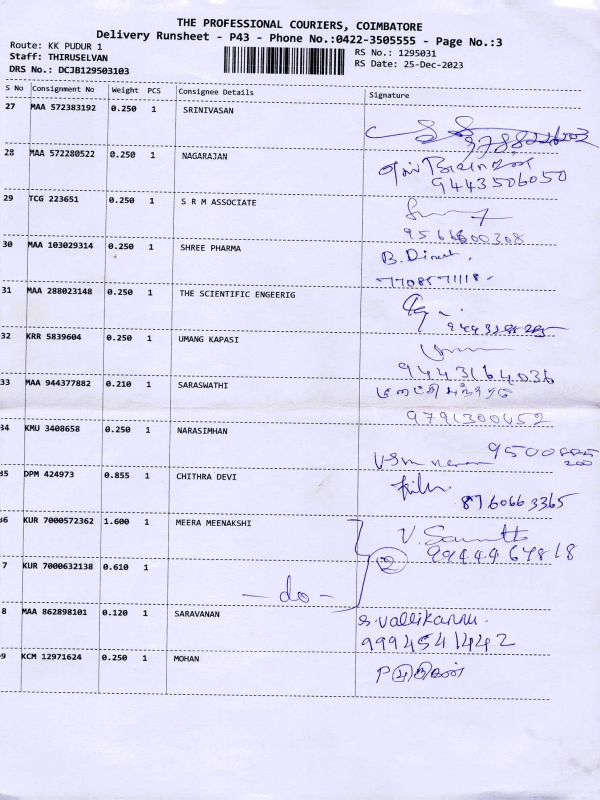 THE PROFESSIONAL COURIERS, COIMBATORE
Delivery Runsheet - P43 - Phone No.:0422-3505555 - Page No.:3
Route: KK PUDUR 1 RS No.: 1295031
Staff: THIRUSELVAN RS Date: 25-Dec-2023
DRS No.: DCJB129503103
S No Consignment No Weight PCS Consignee Details Signature
27 MAA 572383192 0.250 1 SRINIVASAN
28 MAA 572280522 0.250 1 NAGARAJAN
9443506050
29 TCG 223651 0.250 1 S R M ASSOCIATE
30 MAA 103029314 0.250 1 SHREE PHARMA B. Dinesh.
7708571118.
31 MAA 288023148 0.250 1 THE SCIENTIFIC ENGEERIG
32 KRR 5839604 0.250 1 UMANG KAPASI
9443164036
33 MAA 944377882 0.210 1 SARASWATHI
9791300652
34 KMU 3408658 0.250 1 NARASIMHAN
35 DPM 424973 0.855 1 CHITHRA DEVI
8760663365
36 KUR 7000572362 1.600 1 MEERA MEENAKSHI
9944467818
7 KUR 7000632138 0.610 1 2
- do -
8 MAA 862898101 0.120 1 SARAVANAN S. Vallikannu.
9994541442
9 KCM 12971624 0.250 1 MOHAN